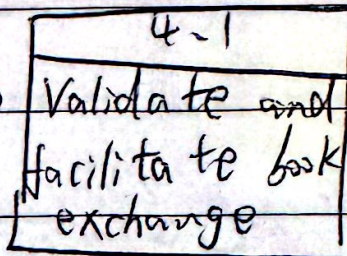 4-1
Validate and
facilitate book
exchange